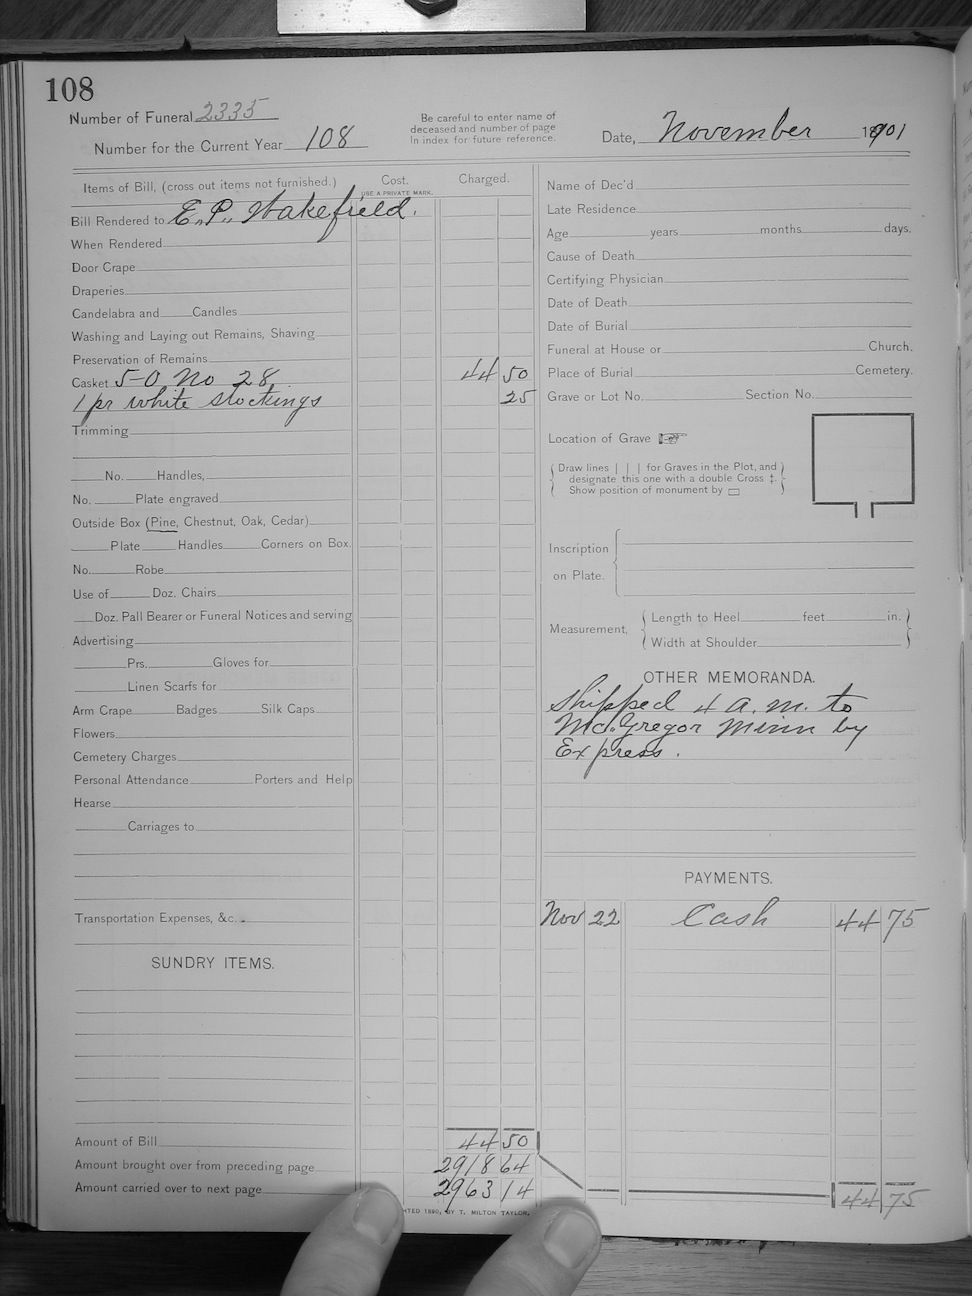 108
Number of Funeral 2335
Number for the Current Year 108
Be careful to enter name of
deceased and number of page
In index for future reference.
Date, November 1901
Items of Bill, (cross out items not furnished.)
Cost.
USE A PRIVATE MARK.
Charged.
Bill Rendered to E. P. Wakefield.
When Rendered
Door Crape
Draperies
Candelabra and Candles
Washing and Laying out Remains, Shaving
Preservation of Remains
Casket 5-0 No 28. 44 50
1 pr white stockings 25
Trimming
No. Handles,
No. Plate engraved
Outside Box (Pine, Chestnut, Oak, Cedar)
Plate Handles Corners on Box.
No. Robe
Use of Doz. Chairs
Doz. Pall Bearer or Funeral Notices and serving
Advertising
Prs. Gloves for
Linen Scarfs for
Arm Crape Badges Silk Caps
Flowers
Cemetery Charges
Personal Attendance Porters and Help
Hearse
Carriages to
Transportation Expenses, &c.
SUNDRY ITEMS.
Amount of Bill 44 50
Amount brought over from preceding page 2918 64
Amount carried over to next page 2963 14
1890, BY T. MILTON TAYLOR.
Name of Dec'd
Late Residence
Age years months days.
Cause of Death
Certifying Physician
Date of Death
Date of Burial
Funeral at House or Church.
Place of Burial Cemetery.
Grave or Lot No. Section No.
Location of Grave ☞
Draw lines | | | for Graves in the Plot, and
designate this one with a double Cross ‡.
Show position of monument by ▭
Inscription
on Plate.
Measurement,
Length to Heel feet in.
Width at Shoulder
OTHER MEMORANDA.
Shipped 4 a.m. to
McGregor Minn by
Express.
PAYMENTS.
Nov 22 Cash 44 75
44 75